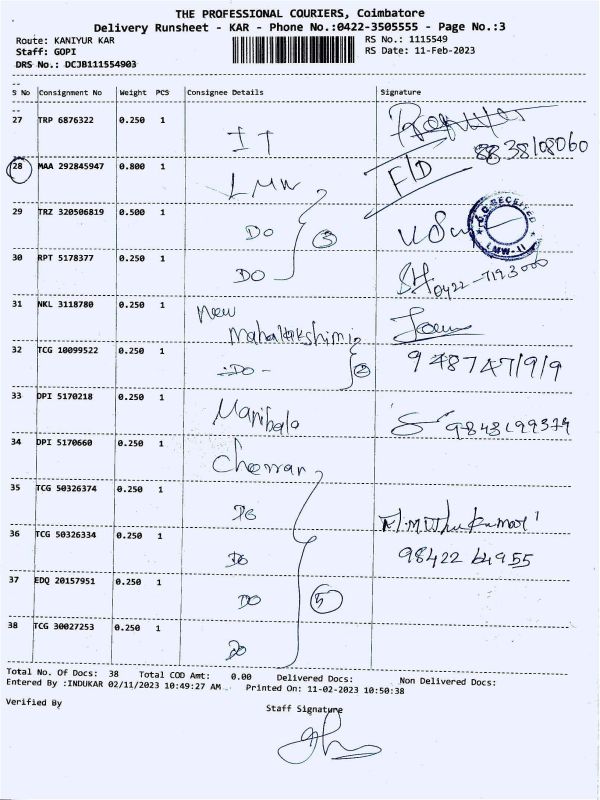 THE PROFESSIONAL COURIERS, Coimbatore
Delivery Runsheet - KAR - Phone No.:0422-3505555 - Page No.:3
Route: KANIYUR KAR RS No.: 1115549
Staff: GOPI RS Date: 11-Feb-2023
DRS No.: DCJB111554903
S No Consignment No Weight PCS Consignee Details Signature
27 TRP 6876322 0.250 1 IT
8838108060
28 MAA 292845947 0.800 1 LMW F/D
29 TRZ 320506819 0.500 1 DO 3
RECEIVED LMW-II
30 RPT 5178377 0.250 1 DO
0422-7193000
31 NKL 3118780 0.250 1 New
Mahalakshmi
32 TCG 10099522 0.250 1 -DO- 2 9487471919
33 DPI 5170218 0.250 1 Manibala 9843199379
34 DPI 5170660 0.250 1 Cherran
35 TCG 50326374 0.250 1 DO M. Muthu Kumar
36 TCG 50326334 0.250 1 DO 98422 64955
37 EDQ 20157951 0.250 1 DO 5
38 TCG 30027253 0.250 1 DO
Total No. Of Docs: 38 Total COD Amt: 0.00 Delivered Docs: Non Delivered Docs:
Entered By :INDUKAR 02/11/2023 10:49:27 AM Printed On: 11-02-2023 10:50:38
Verified By Staff Signature